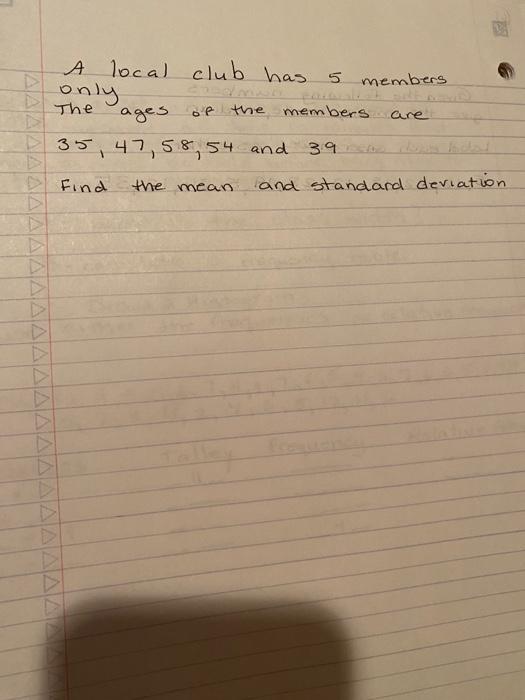 A local club has 5 members
only
The ages of the members are
35, 47, 58, 54 and 39
Find the mean and standard deviation
Talley Frequency